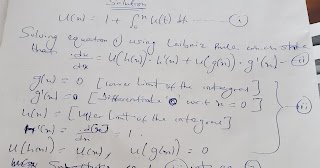 Solution
U(x) = 1 + ∫₀ˣ u(t) dt ------ (i)
Solving equation (i) using Leibniz Rule which state
that du/dx = U(h(x)) · h'(x) + u(g(x)) · g'(x) - (ii)
g(x) = 0 [Lower limit of the integrand]
g'(x) = 0 [Differentials w.r.t x = 0]
u(x) = [Upper limit of the integrand]
h'(x) = d(x)/dx = 1.
U(h(x)) = U(x), U(g(x)) = 0